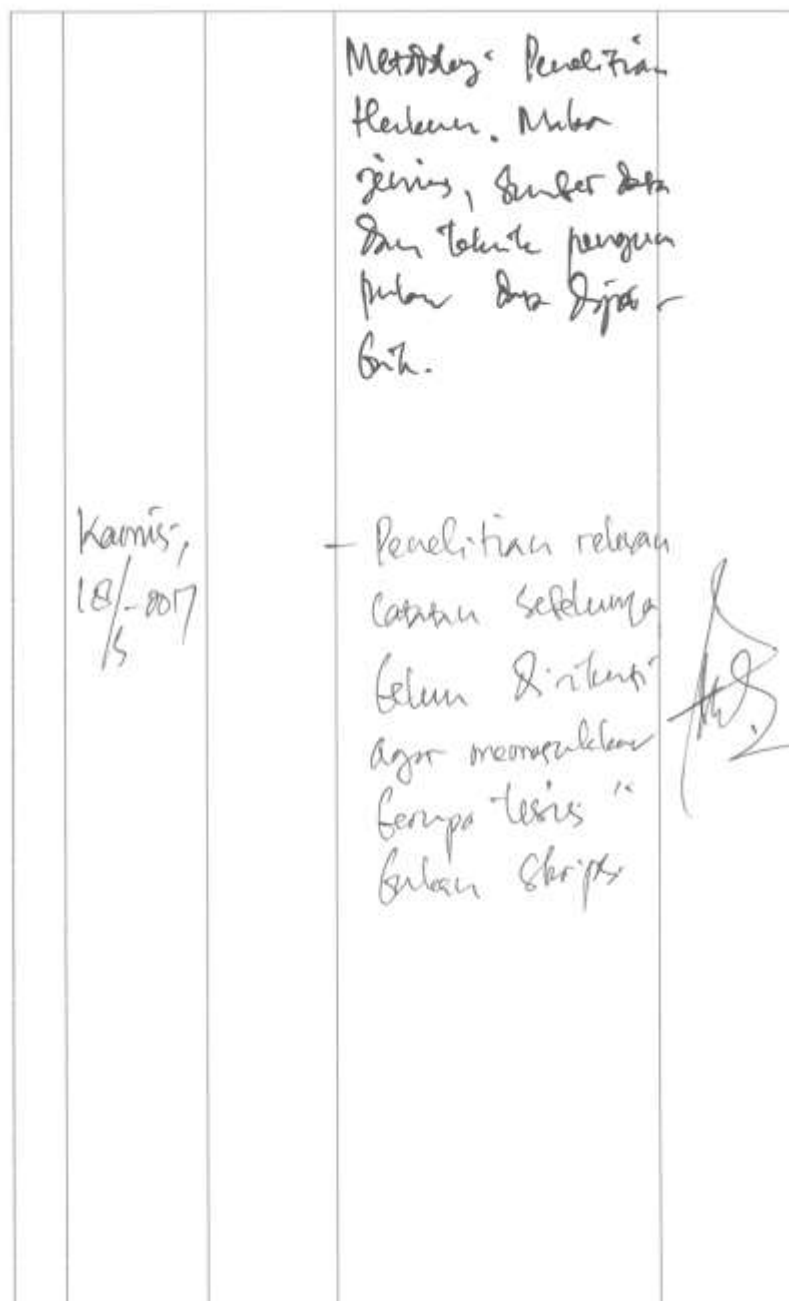 Metodologi Penelitian
jenis, Sumber data
dan teknik pengum
pulan data diper-
baik.
Kamis,
18/5-2017
- Penelitian relevan
catatan sebelumnya
belum diikuti
agar memasukkan
berupa tesis "
bukan Skripsi